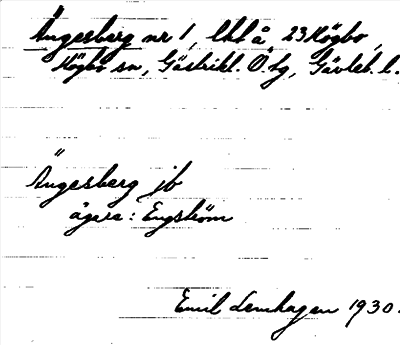 Ängesberg nr 1, lht å 23 Högbo,
Högbo sn, Gästrikl. Ö. tg, Gävleb. l.
Ängesberg jb
ägare: Engström
Emil Lemhagen 1930.